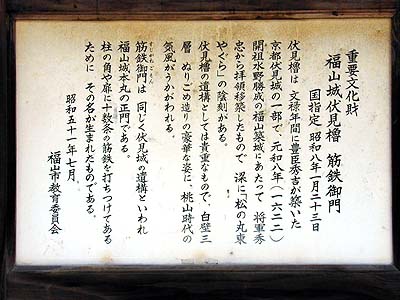 重要文化財
福山城伏見櫓 筋鉄御門
国指定 昭和八年一月二十三日
伏見櫓は、文禄年間に豊臣秀吉が築いた
京都伏見城の一部で、元和八年(一六二二)
開祖水野勝成の福山築城にあたって 将軍秀
忠から拝領移築したもので 梁に「松の丸東
やぐら」の陰刻がある。
伏見櫓の遺構としては貴重なもので、白壁三
層 ぬりごめ造りの豪華な姿に、桃山時代の
気風がうかがわれる。
筋鉄御門は 同じく伏見城の遺構といわれ
福山城本丸の正門である。
柱の角や扉に十数条の筋鉄を打ちつけてある
ために その名が生まれたものである。
昭和五十一年七月
福山市教育委員会